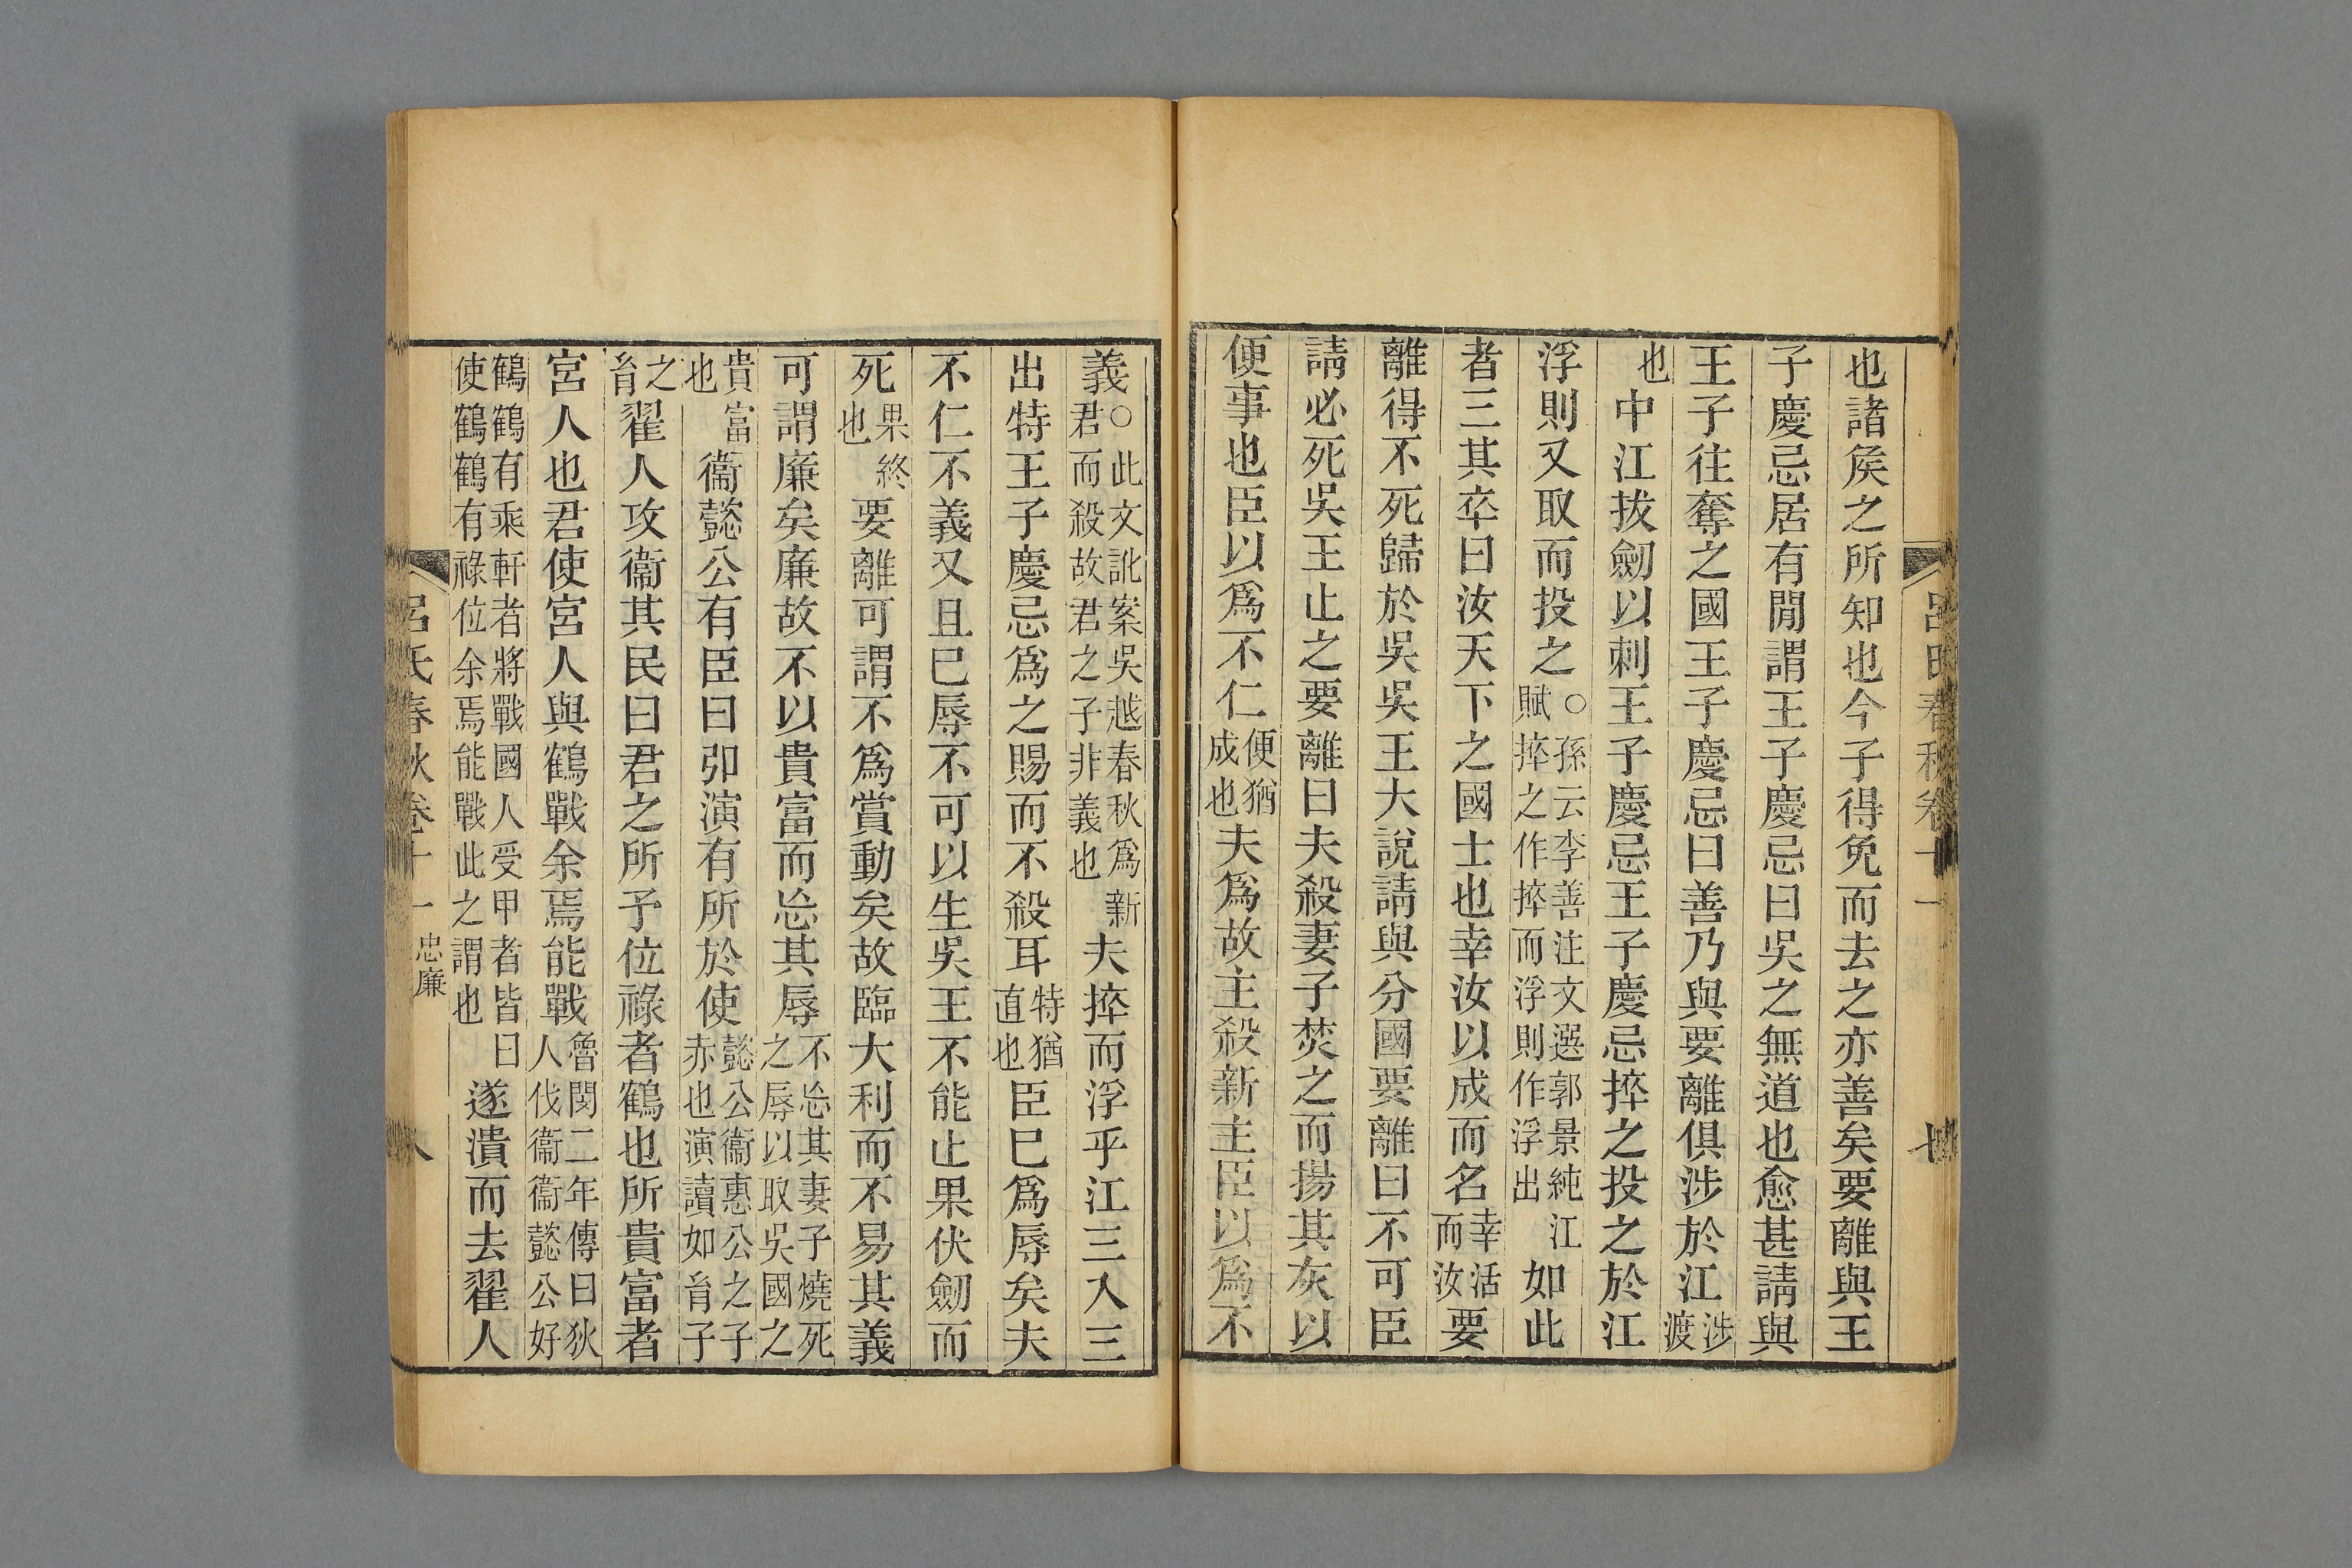 呂氏春秋卷十一 七
也諸矦之所知也今子得免而去之亦善矣要離與王
子慶忌居有閒謂王子慶忌曰吳之無道也愈甚請與
王子往奪之國王子慶忌曰善乃與要離俱涉於江涉渡
也中江拔劒以刺王子慶忌王子慶忌捽之投之於江
浮則又取而投之○孫云李善注文選郭景純江賦捽之作捽而浮則作浮出如此
者三其卒曰汝天下之國士也幸汝以成而名幸活而汝要
離得不死歸於吳吳王大說請與分國要離曰不可臣
請必死吳王止之要離曰夫殺妻子焚之而揚其灰以
便事也臣以爲不仁便猶成也夫爲故主殺新主臣以爲不
義○此文訛案吳越春秋爲新君而殺故君之子非義也夫捽而浮乎江三入三
出特王子慶忌爲之賜而不殺耳特猶直也臣已爲辱矣夫
不仁不義又且已辱不可以生吳王不能止果伏劒而
死果終也要離可謂不爲賞動矣故臨大利而不易其義
可謂廉矣廉故不以貴富而忘其辱不忘其妻子燒死之辱以取吳國之
貴富也衞懿公有臣曰弘演有所於使懿公衞惠公之子赤也演讀如胤子
之胤翟人攻衞其民曰君之所予位祿者鶴也所貴富者
宮人也君使宮人與鶴戰余焉能戰魯閔二年傳曰狄人伐衞衞懿公好
鶴鶴有乘軒者將戰國人受甲者皆曰使鶴鶴有祿位余焉能戰此之謂也遂潰而去翟人
呂氏春秋卷十一 忠廉 八